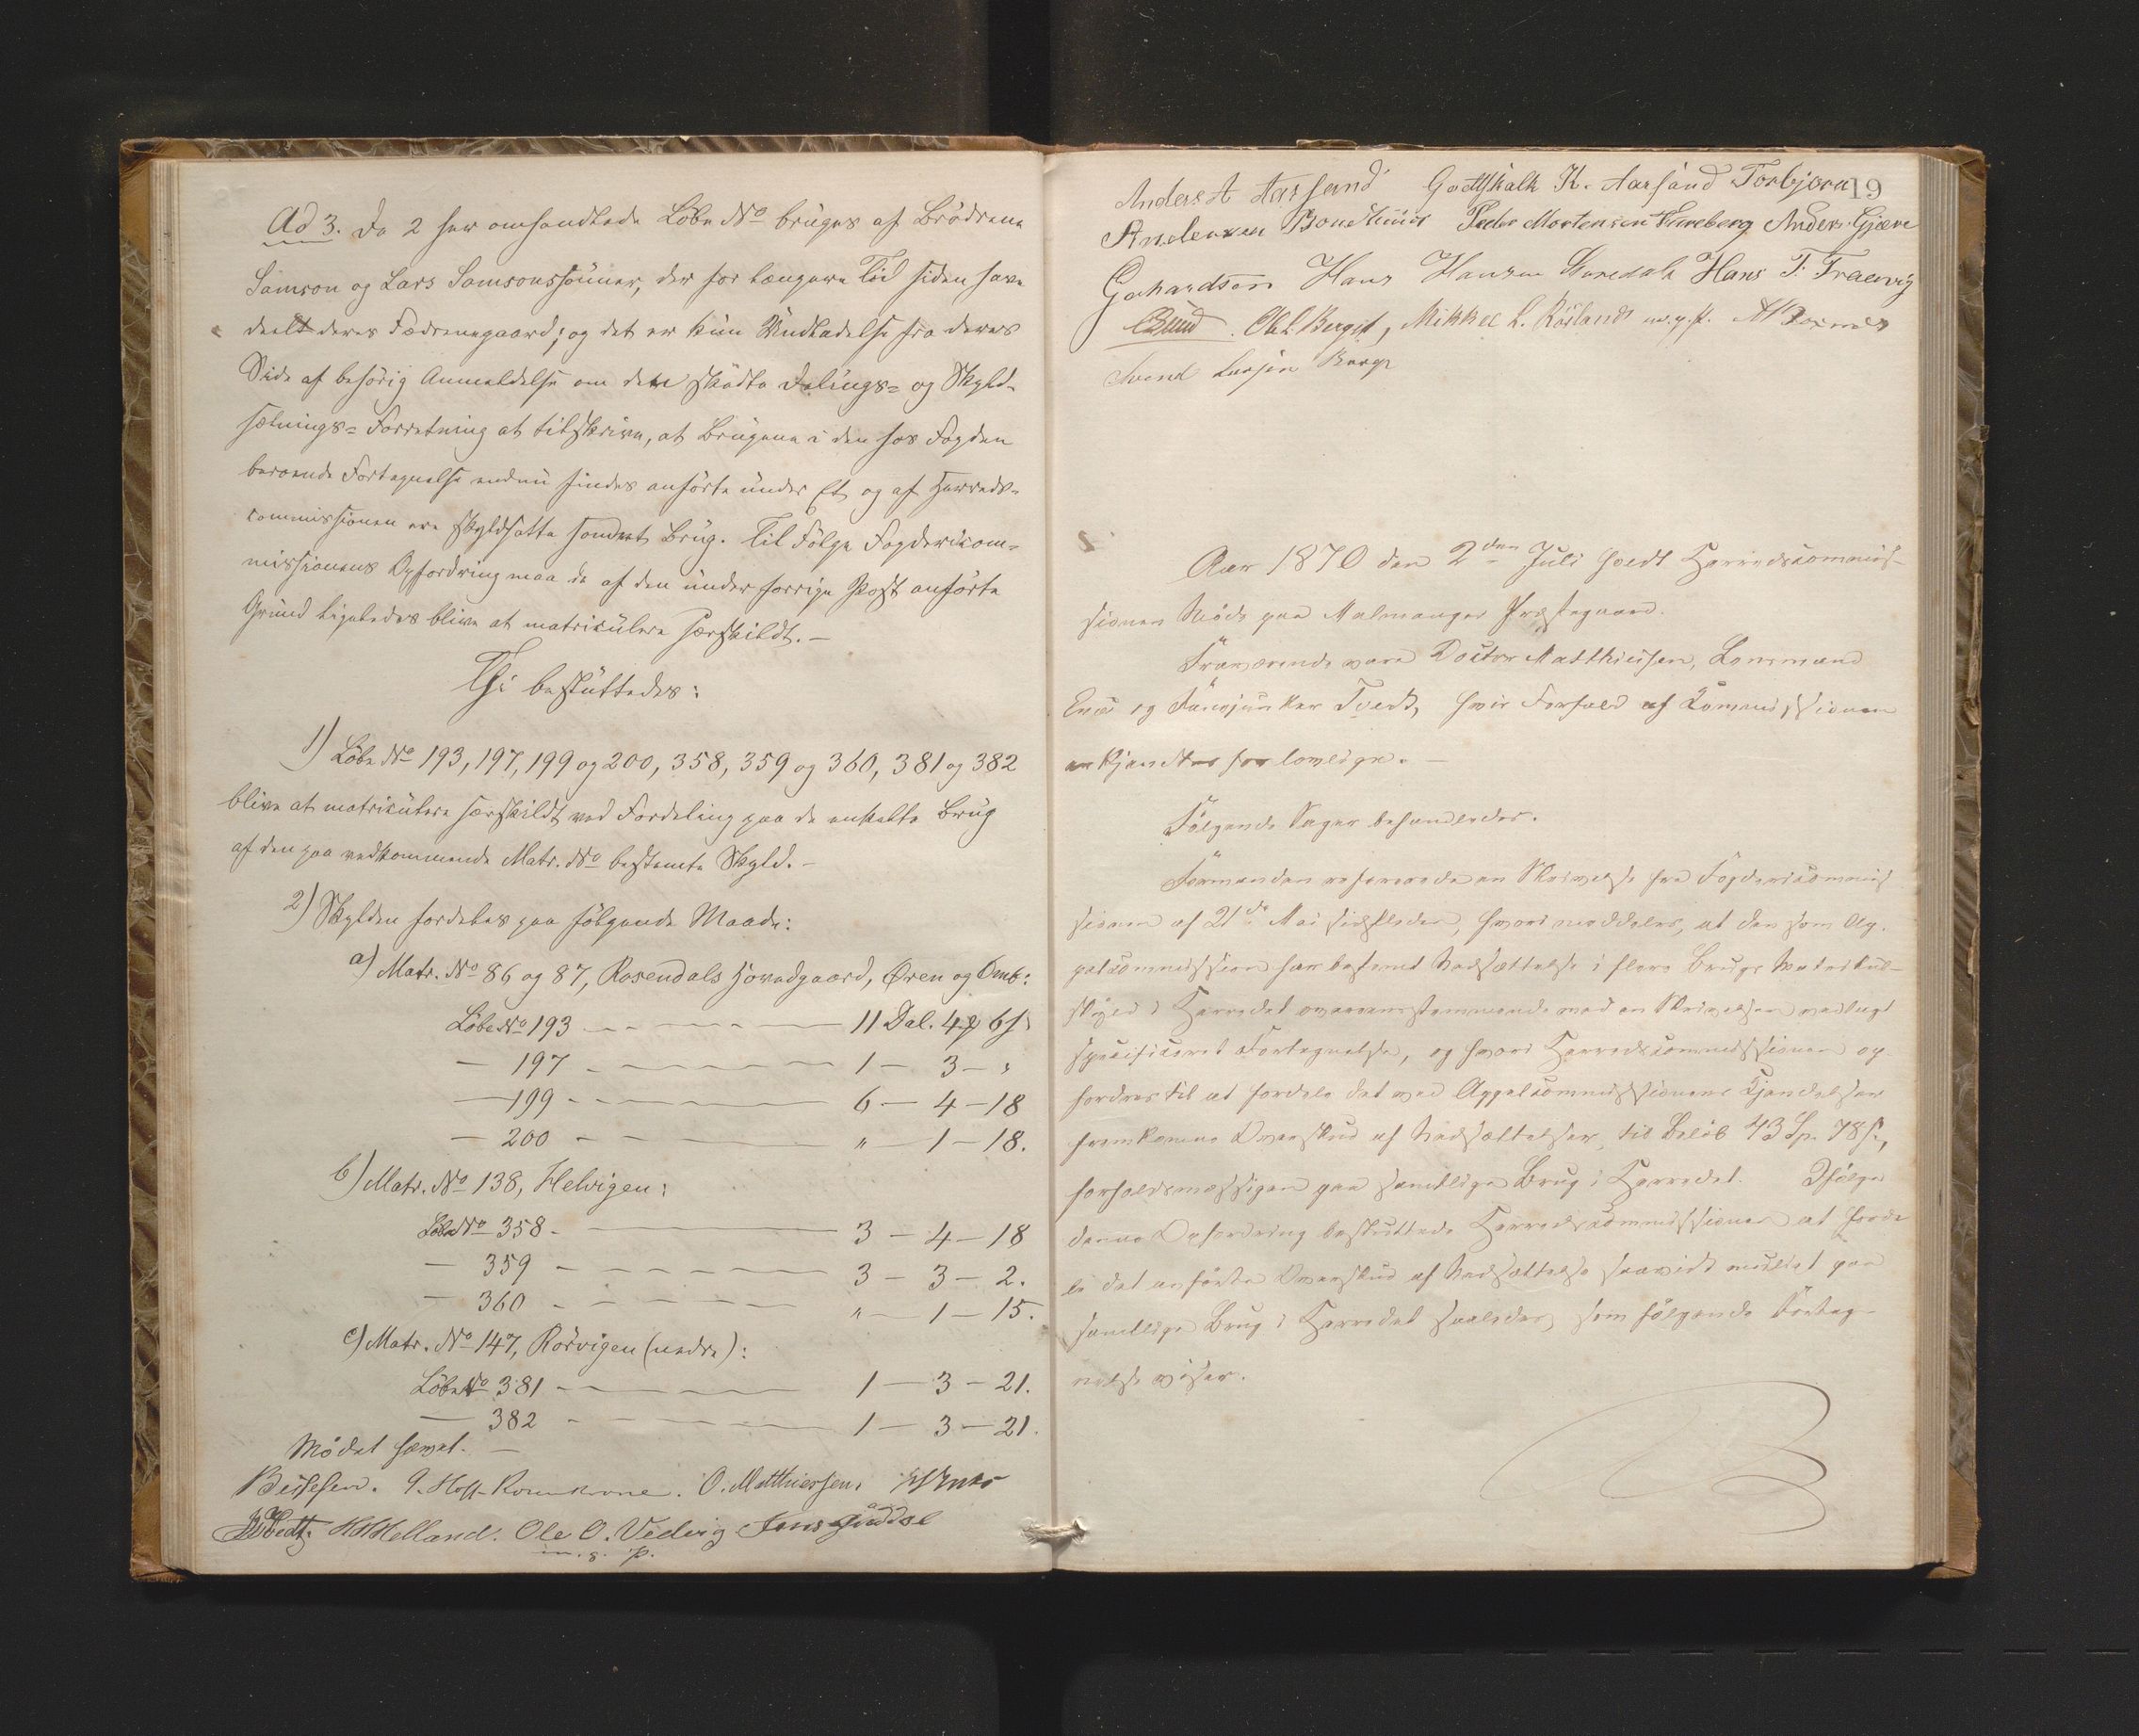 Ad 3. De 2 her omhandlede Löbe No bruges af Brödrene
Samson og Lars Samsonssönner, der for længere Tid siden have
deelt deres Fædrenegaard; og det er kun Undladelse fra deres
Side af behörig Anmeldelse om den skedte Delings= og Skyld-
sætnings=Forretning at tilskrive, at Brugene i den hos Fogden
beroende Fortegnelse endnu findes anförte under Et og af Herreds-
commissionen ere skyldsatte som et Brug. Til Fölge Fogdericom-
missionens Opfordring maa de af den under forrige Post anförte
Grund ligeledes blive at matriculere særskildt. —
Thi besluttedes:
1) Löbe No 193, 197, 199 og 200, 358, 359 og 360, 381 og 382
blive at matriculere særskildt ved Fordeling paa de enkelte Brug
af den paa vedkommende Matr. No bestemte Skyld. —
2) Skylden fordeles paa fölgende Maade:
a) Matr. No 86 og 87, Rosendals Hovedgaard, Øren og Omb:
Löbe No 193 — 11 Dal. 4 6 s
— 197 — 1 — 3 — "
— 199 — 6 — 4 — 18
— 200 — " — 1 — 18.
b) Matr. No 138, Helvigen:
Löbe No 358 — 3 — 4 — 18
— 359 — 3 — 3 — 2.
— 360 — " — 1 — 15.
c) Matr. No 147, Rörvigen (nedre):
Löbe No 381 — 1 — 3 — 21.
— 382 — 1 — 3 — 21.
Mödet hævet. —
O. Matthiessen.
Tvedt. HHHelland. Ole O. Vedvig Jens
m. p.
19
Anders A Aarsand Godtskalk K. Aarsand Torbjørn
Andersen Peder Mortensen Anders Gjære
Gerhardson Hans Hansen Hans T. Traevig
Sund. Ole L Berget, Mikkel L. Røsland m. p. p.
Svend Larsen Berge
Aar 1870 den 2den Juli holdt Herredscommis-
sionen Möde paa Malmanger Præstegaard.
Fraværende vare Doctor Matthiessen, Lensmand
Enes og Fanejunker Tvedt, hvis Forfald af Commissionen
ankjendtes for lovlige. —
Fölgende Sager behandledes.
Formanden refererede en Skrivelse fra Fogdericommis
sionen af 21de Mai sidstleden, hvori meddeles, at den som Ap-
pelcommission har bestemt Nedsættelse i flere Brugs Matrikul-
skyld i Herredet overensstemmende med en Skrivelsen vedlagt
specificeret Fortegnelse, og hvori Herredscommissionen op
fordres til at fordele det ved Appelcommissionens Kjendelser
fremkomne Overskud af Nedsættelser, til Beløb 43 Sp. 78 s.,
forholdsmæssigen paa samtlige Brug i Herredet. Ifølge
denne Opfordring besluttede Herredscommissionen at forde
le det anførte Overskud af Nedsættelse saavidt muligt paa
samtlige Brug i Herredet saaledes, som følgende Forteg-
nelse viser.